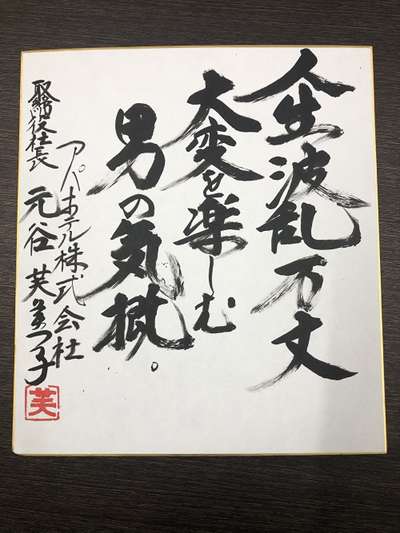 人生波乱万丈
大変を楽しむ
男の気概。
アパホテル株式会社
取締役社長 元谷芙美子
芙